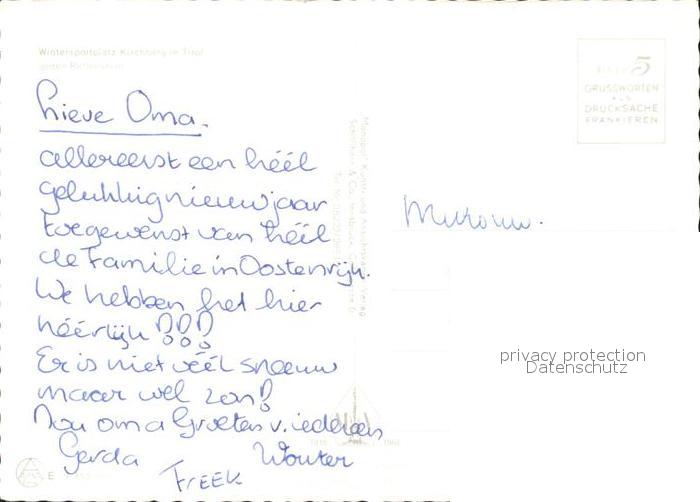 Wintersportplatz Kirchberg in Tirol
gegen
BEI 5
GRUSSWORTEN
ALS
DRUCKSACHE
FRANKIEREN
Lieve Oma.
allereerst een héél
gelukkig nieuwjaar
toegewenst van héél
de Familie in Oostenrijk.
We hebben het hier
héérlijk !!!
Er is niet véél sneeuw
maar wel zon!
Nou oma Groeten v. iedereen
Gerda Wouter
FREEK
Mevrouw.
privacy protection
Datenschutz
E